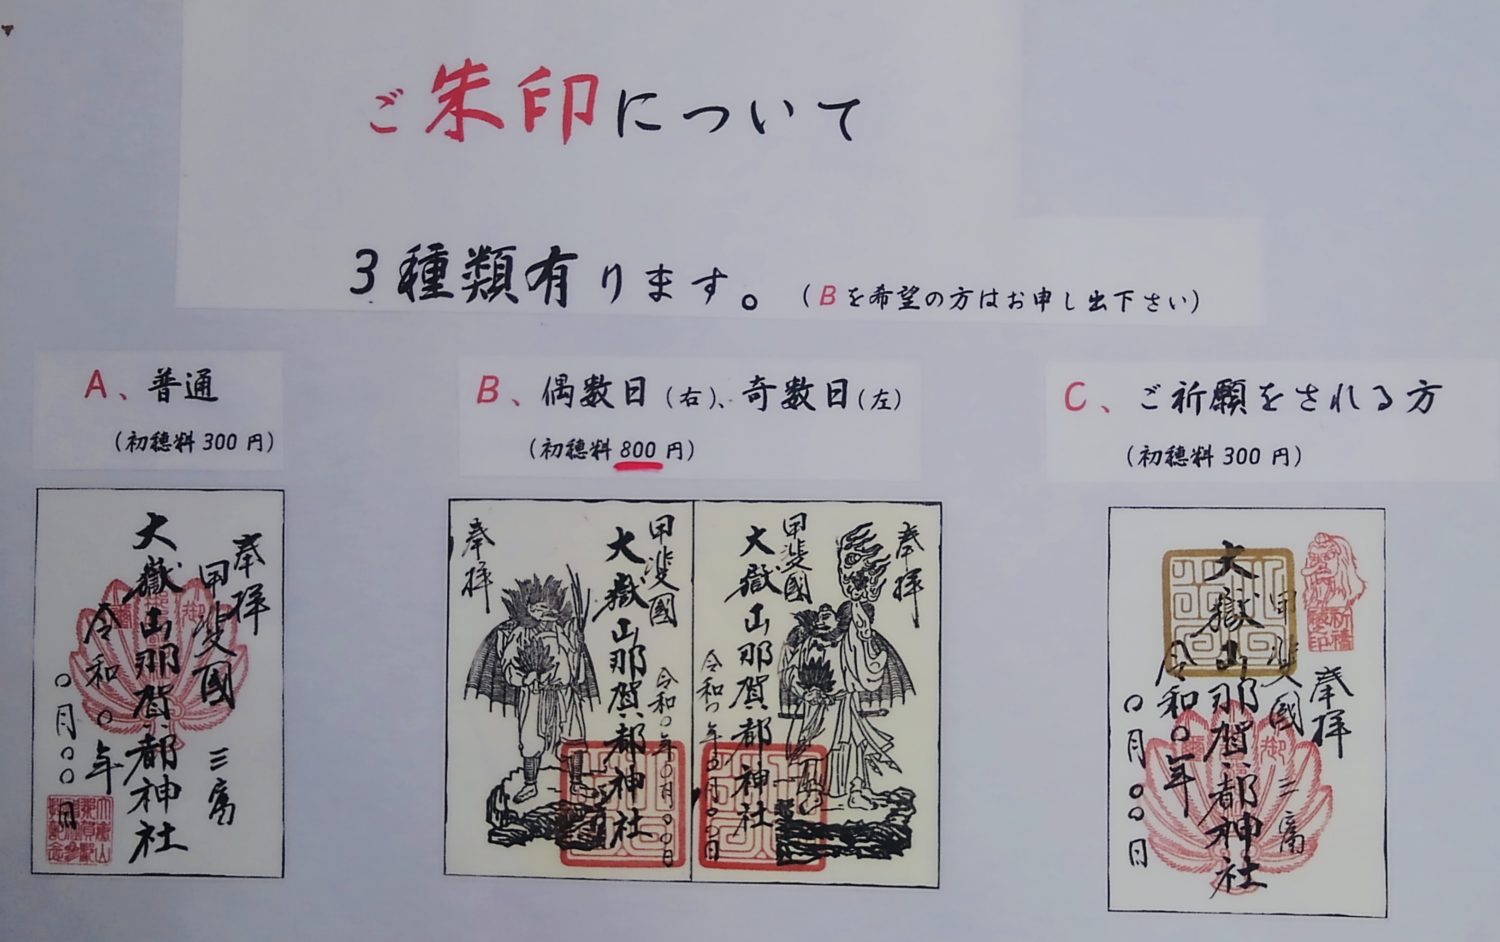 ご朱印について
3種類有ります。(Bを希望の方はお申し出下さい)
A、普通
(初穂料300円)
B、偶数日(右)、奇数日(左)
(初穂料800円)
C、ご祈願をされる方
(初穂料300円)
奉拝
甲斐國 三富
大嶽山那賀都神社
令和〇年
〇月〇〇日
甲斐國
大嶽山那賀都神社
令和〇年〇月〇〇日
奉拝
奉拝
甲斐國
大嶽山那賀都神社
令和〇年〇月〇〇日
奉拝
甲斐國 三富
大嶽山那賀都神社
令和〇年
〇月〇〇日